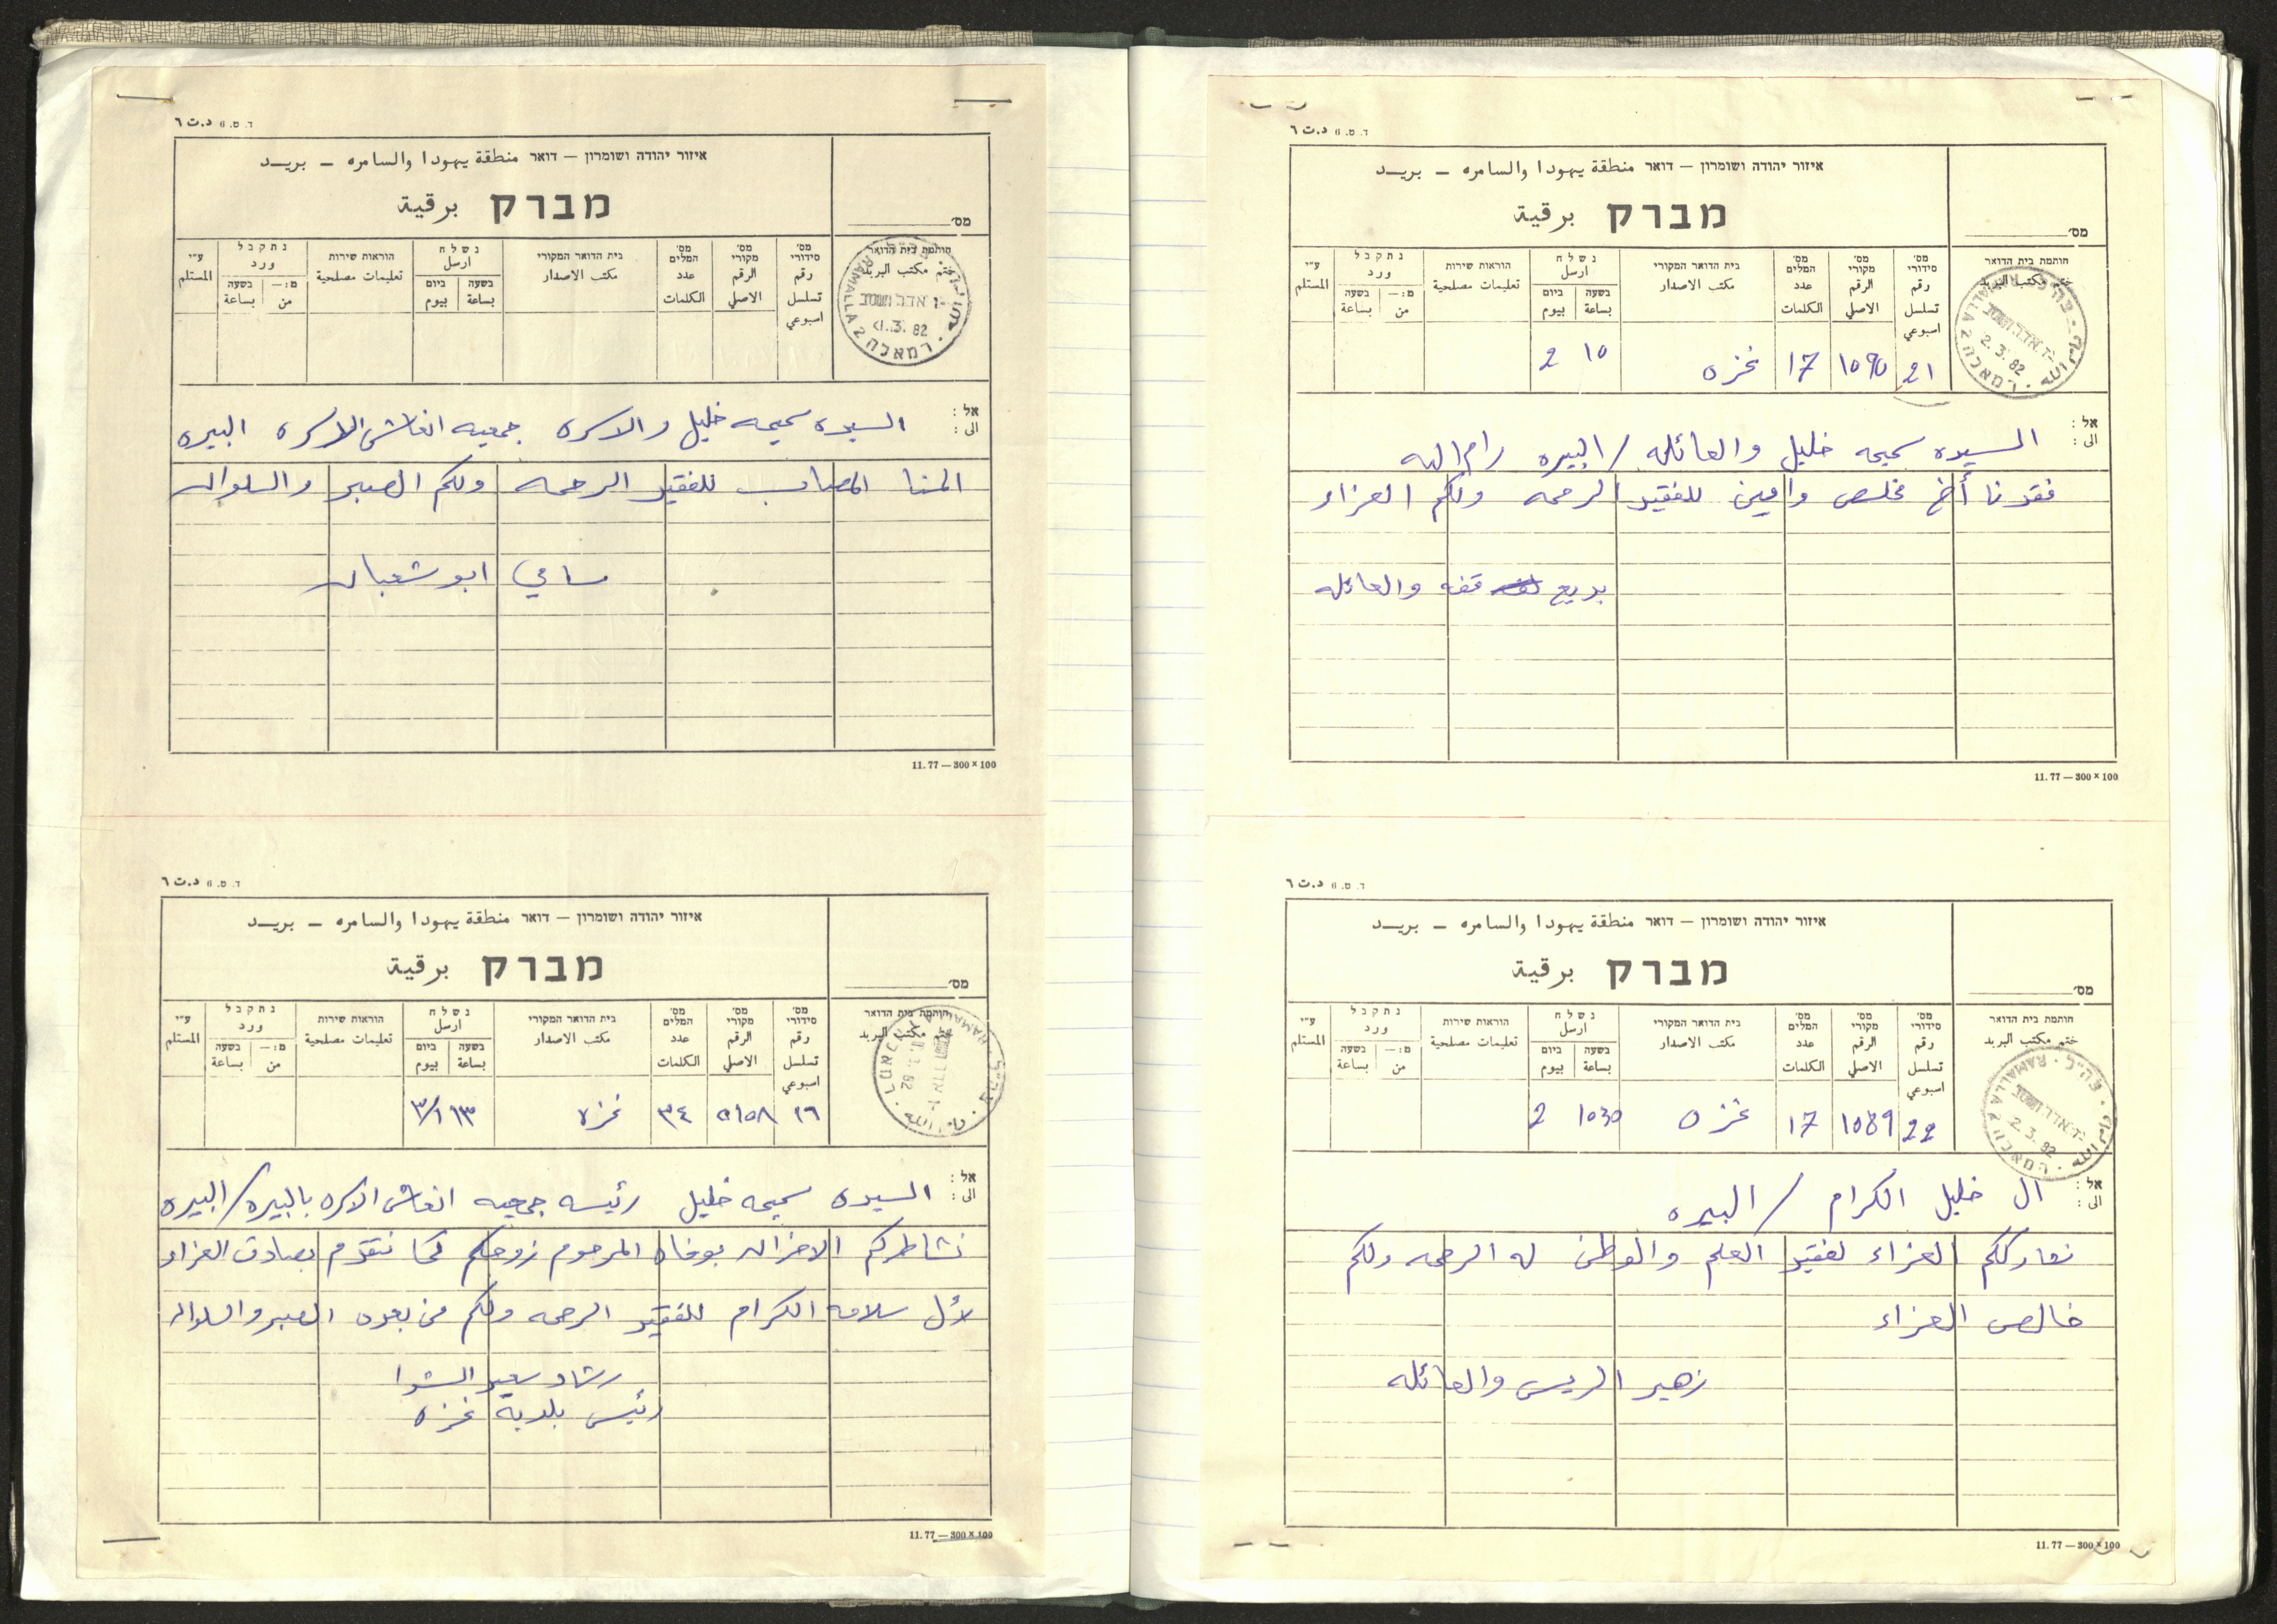 ד. ט. 6 د.ت ٦
איזור יהודה ושומרון – דואר منطقة يهودا والسامره – بريد
מברק برقية
מס'
מס' סידורי رقم تسلسل اسبوعي
מס' מקורי الرقم الاصلي
מס' המלים عدد الكلمات
בית הדואר המקורי مكتب الاصدار
נשלח ارسل
בשעה بساعة ביום بيوم
הוראות שירות تعليمات مصلحية
נתקבל ورد
מ:– من בשעה بساعة
ע"י المستلم
חותמת בית הדואר ختم مكتب البريد
RAMALLA 2 רמאללה
1.3.82
אל :
الى : السيده سميحه خليل والاسره جمعيه انعاش الاسره البيره
المنا المصاب للفقيد الرحمه ولكم الصبر والسلوان
سامي ابو شعبان
11.77 — 300 × 100
ד. ט. 6 د.ت ٦
איזור יהודה ושומרון – דואר منطقة يهودا والسامره – بريد
מברק برقية
מס'
מס' סידורי رقم تسلسل اسبوعي
מס' מקורי الرقم الاصلي
מס' המלים عدد الكلمات
בית הדואר המקורי مكتب الاصدار
נשלח ارسل
בשעה بساعة ביום بيوم
הוראות שירות تعليمات مصلحية
נתקבל ورد
מ:– من בשעה بساعة
ע"י المستلم
חותמת בית הדואר ختم مكتب البريد
٢٦ ٣٤ غزه ١٣ ٣/١
אל :
الى : السيده سميحه خليل رئيسه جمعيه انعاش الاسره بالبيره / البيره
نشاطركم الاحزان بوفاة المرحوم زوجكم كما نتقدم بصادق العزاء
لآل سلامه الكرام للفقيد الرحمه ولكم من بعده الصبر والسلوان
رشاد سعيد الشوا
رئيس بلدية غزه
11.77 — 300 × 100
ד. ט. 6 د.ت ٦
איזור יהודה ושומרון – דואר منطقة يهودا والسامره – بريد
מברק برقية
מס'
מס' סידורי رقم تسلسل اسبوعي
מס' מקורי الرقم الاصلي
מס' המלים عدد الكلمات
בית הדואר המקורי مكتب الاصدار
נשלח ارسل
בשעה بساعة ביום بيوم
הוראות שירות تعليمات مصلحية
נתקבל ورد
מ:– من בשעה بساعة
ע"י المستلم
חותמת בית הדואר ختم مكتب البريد
RAMALLA 2 רמאללה
2.3.82
21 1090 17 غزه 10 2
אל :
الى : السيده سميحه خليل والعائله / البيره رام الله
فقدنا أخ مخلص وامين للفقيد الرحمه ولكم العزاء
بديع قفه والعائله
11.77 — 300 × 100
ד. ט. 6 د.ت ٦
איזור יהודה ושומרון – דואר منطقة يهودا والسامره – بريد
מברק برقية
מס'
מס' סידורי رقم تسلسل اسبوعي
מס' מקורי الرقم الاصلي
מס' המלים عدد الكلمات
בית הדואר המקורי مكتب الاصدار
נשלח ارسل
בשעה بساعة ביום بيوم
הוראות שירות تعليمات مصلحية
נתקבל ورد
מ:– من בשעה بساعة
ע"י المستلم
חותמת בית הדואר ختم مكتب البريد
RAMALLA 2 רמאללה
2.3.82
22 1089 17 غزه 1030 2
אל :
الى : ال خليل الكرام / البيره
العزاء لفقيد العلم والوطن له الرحمه ولكم
خالص العزاء
زهير الريس والعائله
11.77 — 300 × 100